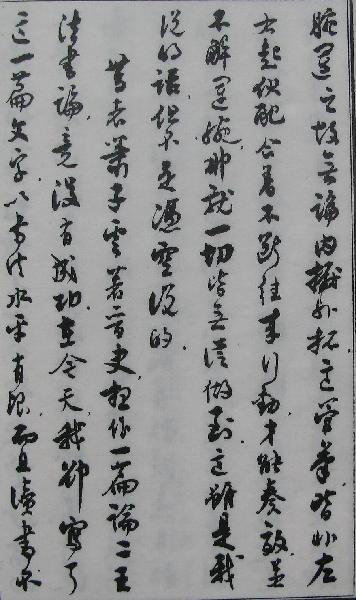 腕運之故,無論內擫外拓,這管筆皆非左
右起伏配合着不斷往來行動,才能奏效,若
不解運腕,那就一切皆無從做到,這雖是我
說的話,但不是憑空說的。
者蕭子雲著晉史,想作一篇論二王
法書論,竟沒有成功,至今天,我卻寫了
這一篇文字,以書法水平有限,而且讀書不